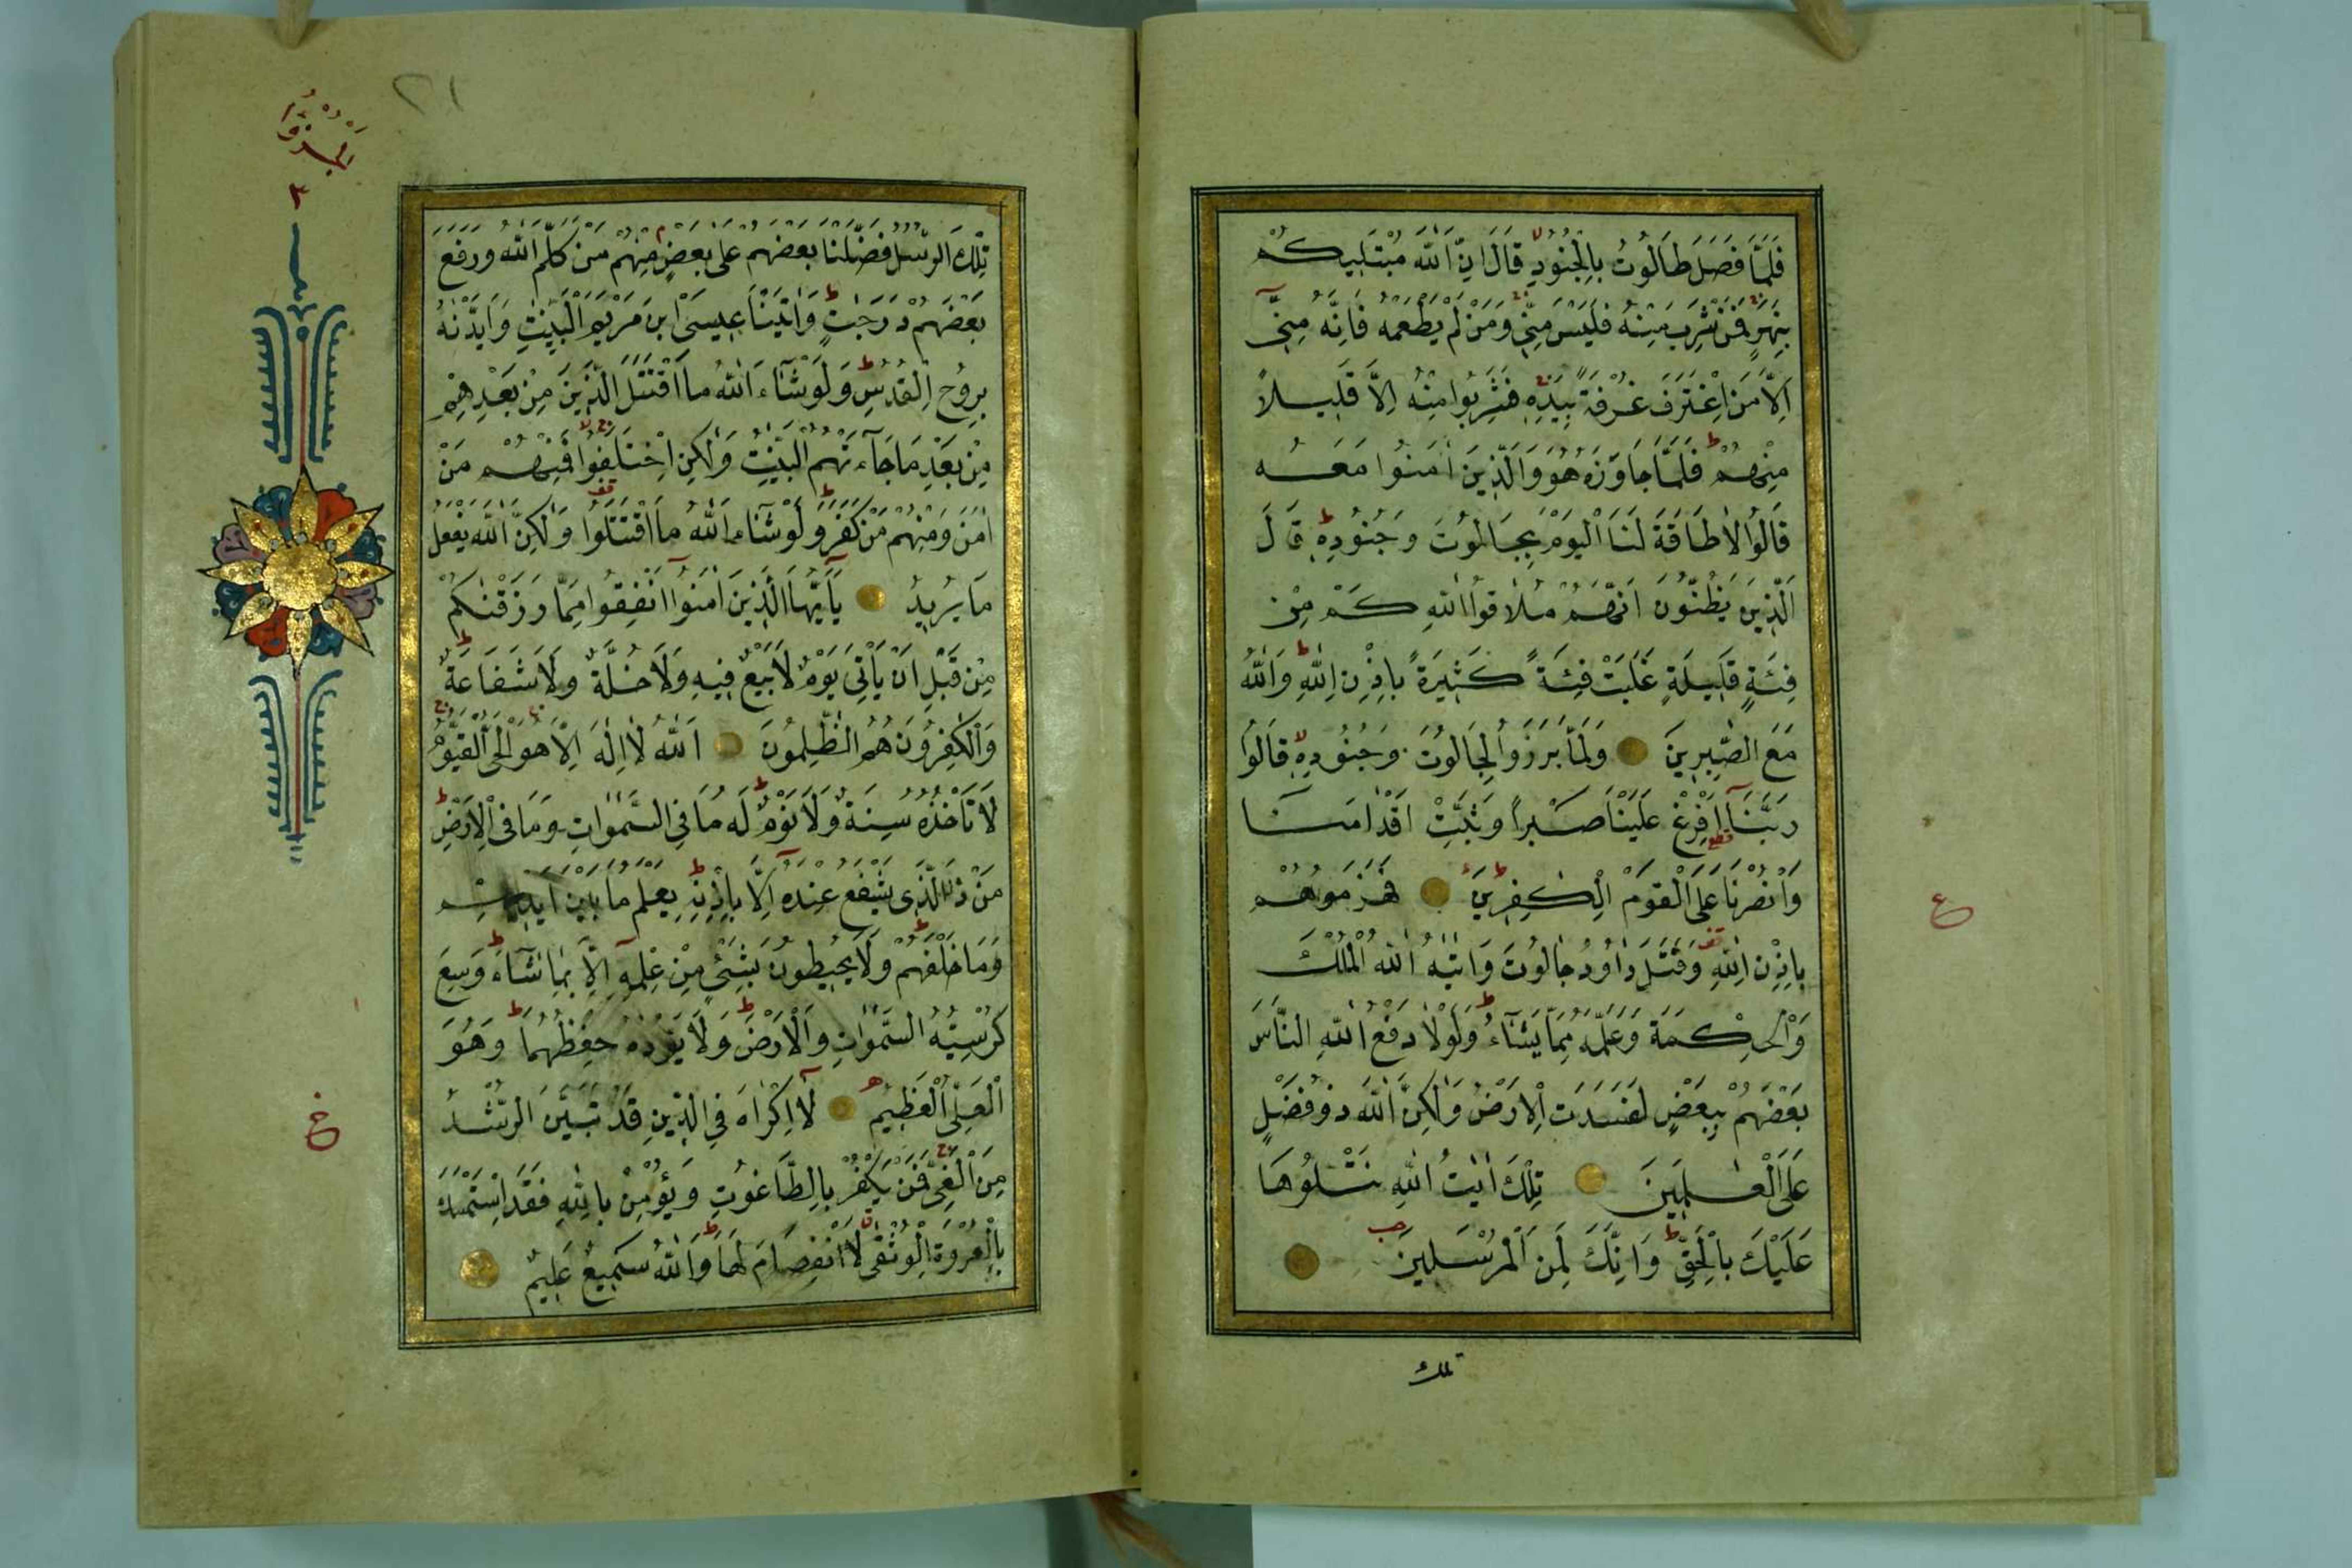 فَلَمَّا فَصَلَ طَالُوتُ بِالْجُنُودِ قَالَ اِنَّ اللّٰهَ مُبْتَلِيكُمْ
بِنَهَرٍ فَمَنْ شَرِبَ مِنْهُ فَلَيْسَ مِنِّى وَمَنْ لَمْ يَطْعَمْهُ فَاِنَّهُ مِنِّى
اِلَّا مَنِ اغْتَرَفَ غُرْفَةً بِيَدِهِ فَشَرِبُوا مِنْهُ اِلَّا قَلِيلاً
مِنْهُمْ فَلَمَّا جَاوَزَهُ هُوَ وَالَّذِينَ اٰمَنُوا مَعَهُ
قَالُوا لَا طَاقَةَ لَنَا الْيَوْمَ بِجَالُوتَ وَجُنُودِهِ قَالَ
الَّذِينَ يَظُنُّونَ اَنَّهُمْ مُلَاقُوا اللّٰهِ كَمْ مِنْ
فِئَةٍ قَلِيلَةٍ غَلَبَتْ فِئَةً كَثِيرَةً بِاِذْنِ اللّٰهِ وَاللّٰهُ
مَعَ الصّٰبِرِينَ وَلَمَّا بَرَزُوا لِجَالُوتَ وَجُنُودِهِ قَالُوا
رَبَّنَا اَفْرِغْ عَلَيْنَا صَبْراً وَثَبِّتْ اَقْدَامَنَا
وَانْصُرْنَا عَلَى الْقَوْمِ الْكٰفِرِينَ فَهَزَمُوهُمْ
بِاِذْنِ اللّٰهِ وَقَتَلَ دَاوُدُ جَالُوتَ وَاٰتٰيهُ اللّٰهُ الْمُلْكَ
وَالْحِكْمَةَ وَعَلَّمَهُ مِمَّا يَشَاءُ وَلَوْلَا دَفْعُ اللّٰهِ النَّاسَ
بَعْضَهُمْ بِبَعْضٍ لَفَسَدَتِ الْاَرْضُ وَلٰكِنَّ اللّٰهَ ذُو فَضْلٍ
عَلَى الْعٰلَمِينَ تِلْكَ اٰيَاتُ اللّٰهِ نَتْلُوهَا
عَلَيْكَ بِالْحَقِّ وَاِنَّكَ لَمِنَ الْمُرْسَلِينَ
تلك
ع
٢١
الجزؤ
٣
تِلْكَ الرُّسُلُ فَضَّلْنَا بَعْضَهُمْ عَلٰى بَعْضٍ مِنْهُمْ مَنْ كَلَّمَ اللّٰهُ وَرَفَعَ
بَعْضَهُمْ دَرَجٰتٍ وَاٰتَيْنَا عِيسَى ابْنَ مَرْيَمَ الْبَيِّنٰتِ وَاَيَّدْنٰهُ
بِرُوحِ الْقُدُسِ وَلَوْ شَاءَ اللّٰهُ مَا اقْتَتَلَ الَّذِينَ مِنْ بَعْدِهِمْ
مِنْ بَعْدِ مَا جَاءَتْهُمُ الْبَيِّنٰتُ وَلٰكِنِ اخْتَلَفُوا فَمِنْهُمْ مَنْ
اٰمَنَ وَمِنْهُمْ مَنْ كَفَرَ وَلَوْ شَاءَ اللّٰهُ مَا اقْتَتَلُوا وَلٰكِنَّ اللّٰهَ يَفْعَلُ
مَا يُرِيدُ يَا اَيُّهَا الَّذِينَ اٰمَنُوا اَنْفِقُوا مِمَّا رَزَقْنٰكُمْ
مِنْ قَبْلِ اَنْ يَاْتِىَ يَوْمٌ لَا بَيْعٌ فِيهِ وَلَا خُلَّةٌ وَلَا شَفَاعَةٌ
وَالْكٰفِرُونَ هُمُ الظّٰلِمُونَ اَللّٰهُ لَا اِلٰهَ اِلَّا هُوَ الْحَىُّ الْقَيُّومُ
لَا تَاْخُذُهُ سِنَةٌ وَلَا نَوْمٌ لَهُ مَا فِى السَّمٰوَاتِ وَمَا فِى الْاَرْضِ
مَنْ ذَا الَّذِى يَشْفَعُ عِنْدَهُ اِلَّا بِاِذْنِهِ يَعْلَمُ مَا بَيْنَ اَيْدِيهِمْ
وَمَا خَلْفَهُمْ وَلَا يُحِيطُونَ بِشَىْءٍ مِنْ عِلْمِهِ اِلَّا بِمَا شَاءَ وَسِعَ
كُرْسِيُّهُ السَّمٰوَاتِ وَالْاَرْضَ وَلَا يَؤُدُهُ حِفْظُهُمَا وَهُوَ
الْعَلِىُّ الْعَظِيمُ لَا اِكْرَاهَ فِى الدِّينِ قَدْ تَبَيَّنَ الرُّشْدُ
مِنَ الْغَىِّ فَمَنْ يَكْفُرْ بِالطَّاغُوتِ وَيُؤْمِنْ بِاللّٰهِ فَقَدِ اسْتَمْسَكَ
بِالْعُرْوَةِ الْوُثْقٰى لَا انْفِصَامَ لَهَا وَاللّٰهُ سَمِيعٌ عَلِيمٌ
خ